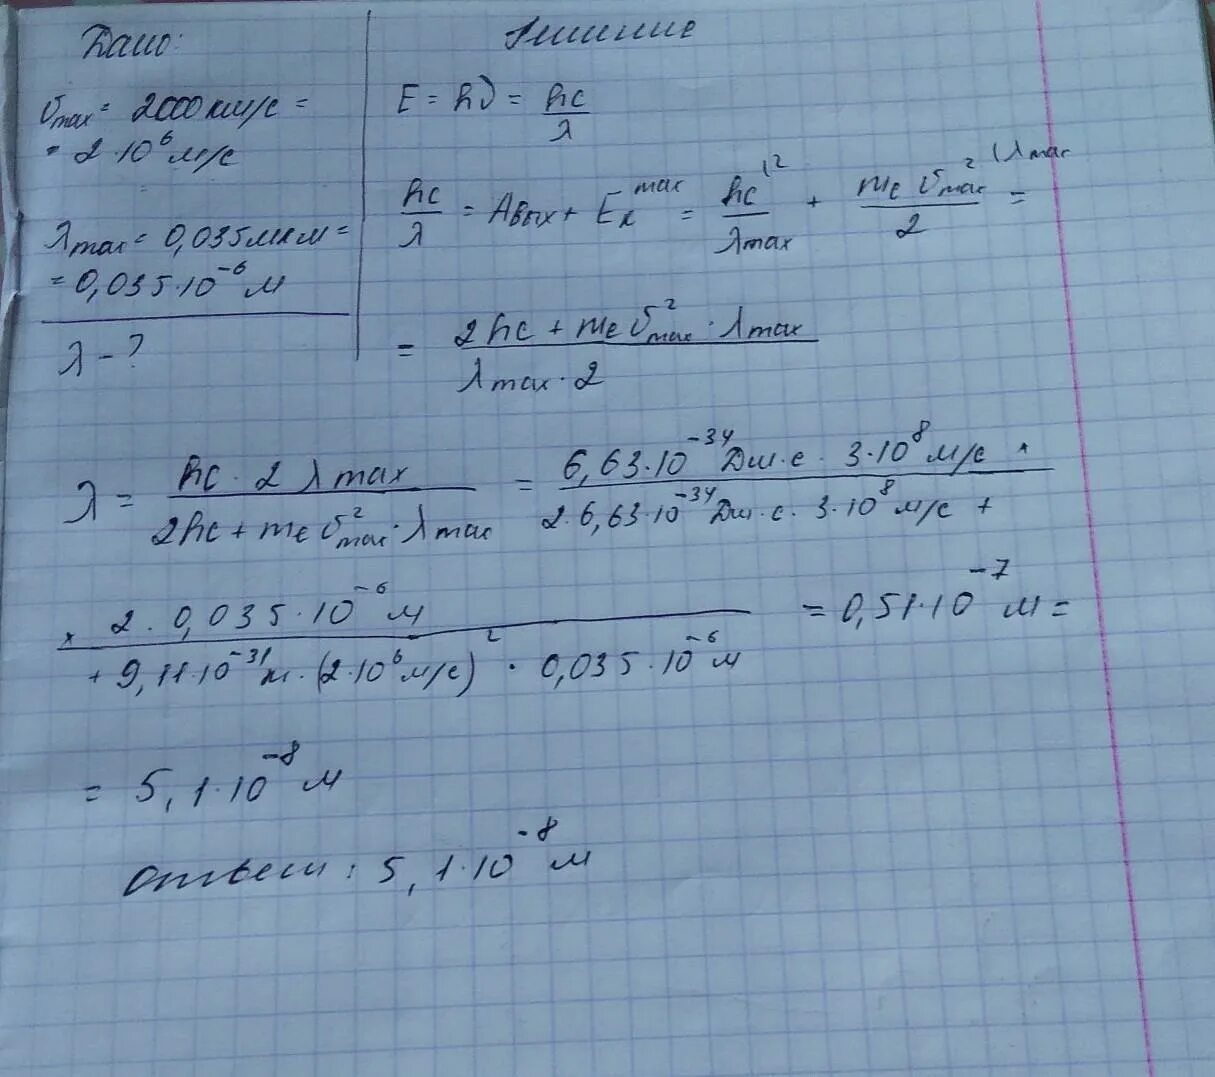 Дано:
υmax = 2000 км/с =
= 2·10⁶ м/с
λmax = 0,035 мкм =
= 0,035·10⁻⁶ м
λ - ?
Решение
E = hν = hc/λ
hc/λ = Aвых + Eк^max = hc^(2/λmax + meυ²max^(λmax/2 =
= (2hc + meυ²max·λmax)/(λmax·2)
λ = (hc·2λmax)/(2hc + meυ²max·λmax) = (6,63·10⁻³⁴ Дж·с·3·10⁸ м/с ×)/(2·6,63·10⁻³⁴ Дж·с·3·10⁸ м/с +)
(× 2·0,035·10⁻⁶ м)/(+ 9,11·10⁻³¹ кг·(2·10⁶ м/с)²·0,035·10⁻⁶ м) = 0,51·10⁻⁷ м =
= 5,1·10⁻⁸ м
Ответ: 5,1·10⁻⁸ м